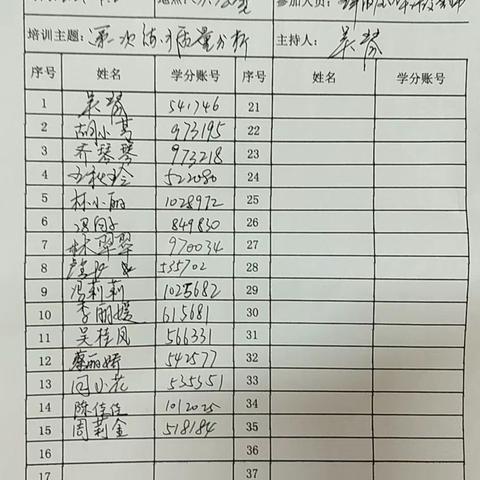 参加人员：
培训主题： 第二次练习质量分析 主持人： 吴琴
序号 姓名 学分账号 序号 姓名 学分账号
1 吴琴 541746 21
2 胡小菁 973195 22
3 齐琴琴 973218 23
4 522080 24
5 林小丽 1028972 25
6 849830 26
7 林翠翠 970034 27
8 535702 28
9 冯莉莉 1025682 29
10 李丽媛 615681 30
11 吴桂凤 566331 31
12 蔡丽娇 542577 32
13 向小花 535351 33
14 陈佳佳 1012025 34
15 周莉金 518184 35
16 36
17 37